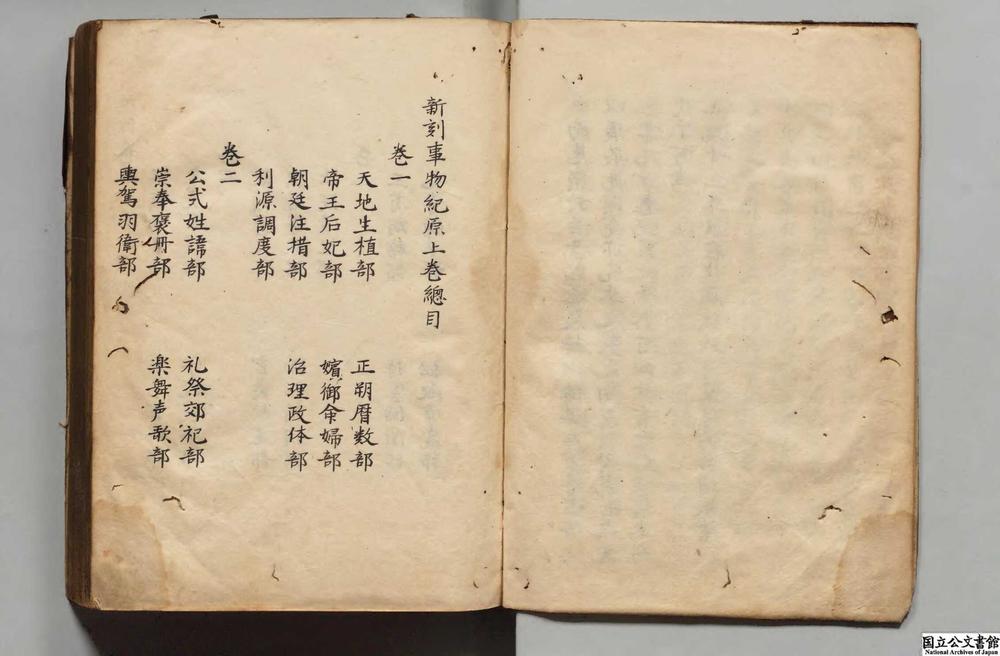 新刻事物紀原上巻總目
巻一
天地生植部 正朔暦数部
帝王后妃部 嬪御命婦部
朝廷注措部 治理政体部
利源調度部
巻二
公式姓諱部 礼祭郊祀部
崇奉褒冊部 楽舞声歌部
輿駕羽衛部
国立公文書館
National Archives of Japan